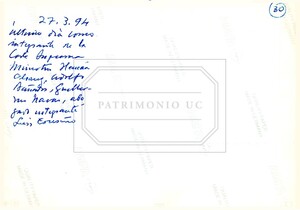 30
27.3.94
último día como
integrante de la
Corte Suprema
Ministro Hernán
Adolfo
Bañados, Guiller-
mo Navas, abo-
gado integrante
Luis
PATRIMONIO UC